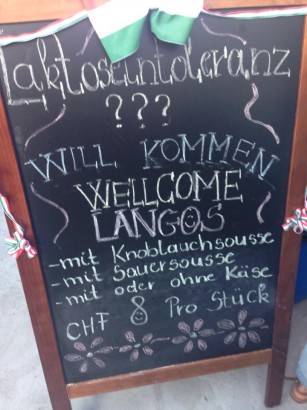 Laktoseintoleranz
???
WILL KOMMEN
WELLCOME
LANGOS
-mit Knoblauchsousse
-mit Sauersousse
-mit oder ohne Käse
CHF 8 Pro Stück